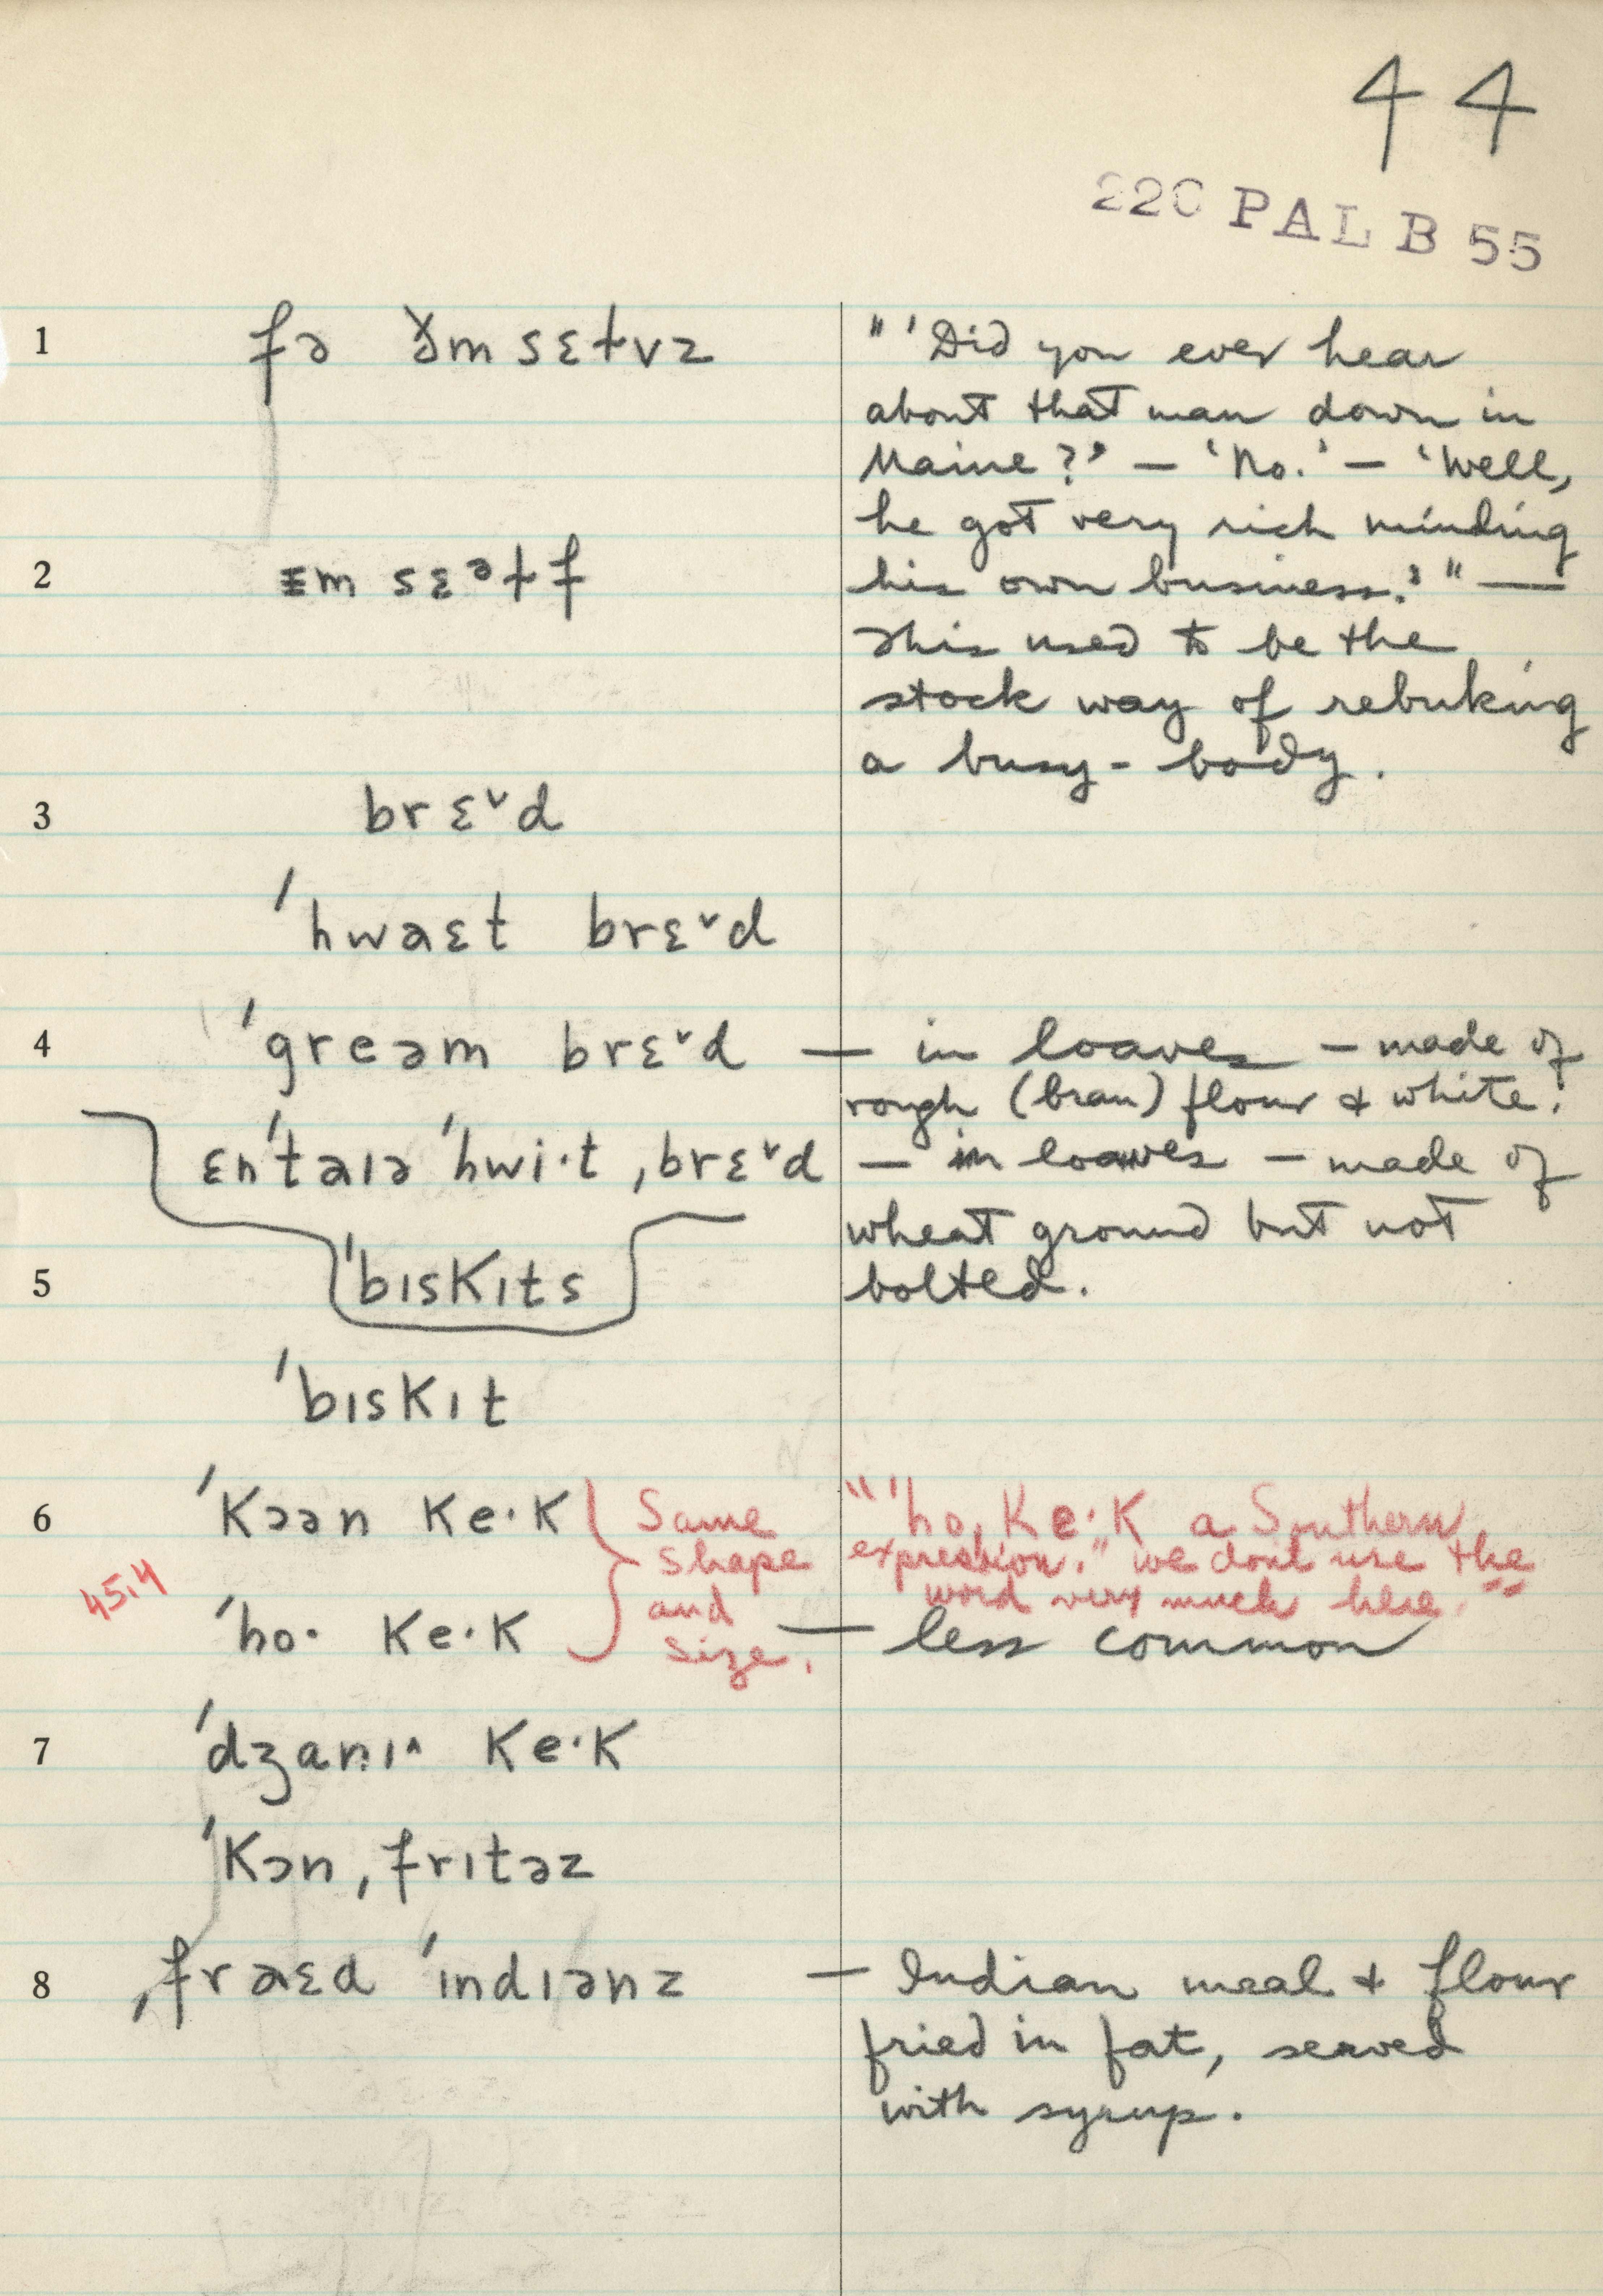 44
220 PAL B 55
1 fə ðm sɛłvz
"'Did you ever hear
about that man down in
Maine?' — 'No.' — 'Well,
he got very rich minding
2 ᵻm sɛᵊłf
his own business.'" —
This used to be the
stock way of rebuking
a busy-body.
3 brɛ˅d
'hwaɛt brɛ˅d
4 'greəm brɛ˅d — in loaves — made of
rough (bran) flour & white.
ɛn'taɪə 'hwi·t ˌbrɛ˅d — in loaves — made of
wheat ground but not
5 'bɪskɪts bolted.
'bɪskɪt
6 'kɔən ke·k
Same
shape
and
size.
"'ho, ke·k a Southern
expression." we dont use the
word very much here."
45.4
'ho· ke·k — less common
7 'dʒanɪ˄ ke·k
'kɔn ˌfrɪtəz
8 ˌfraɛd 'ɪndɪənz — Indian meal & flour
fried in fat, served
with syrup.